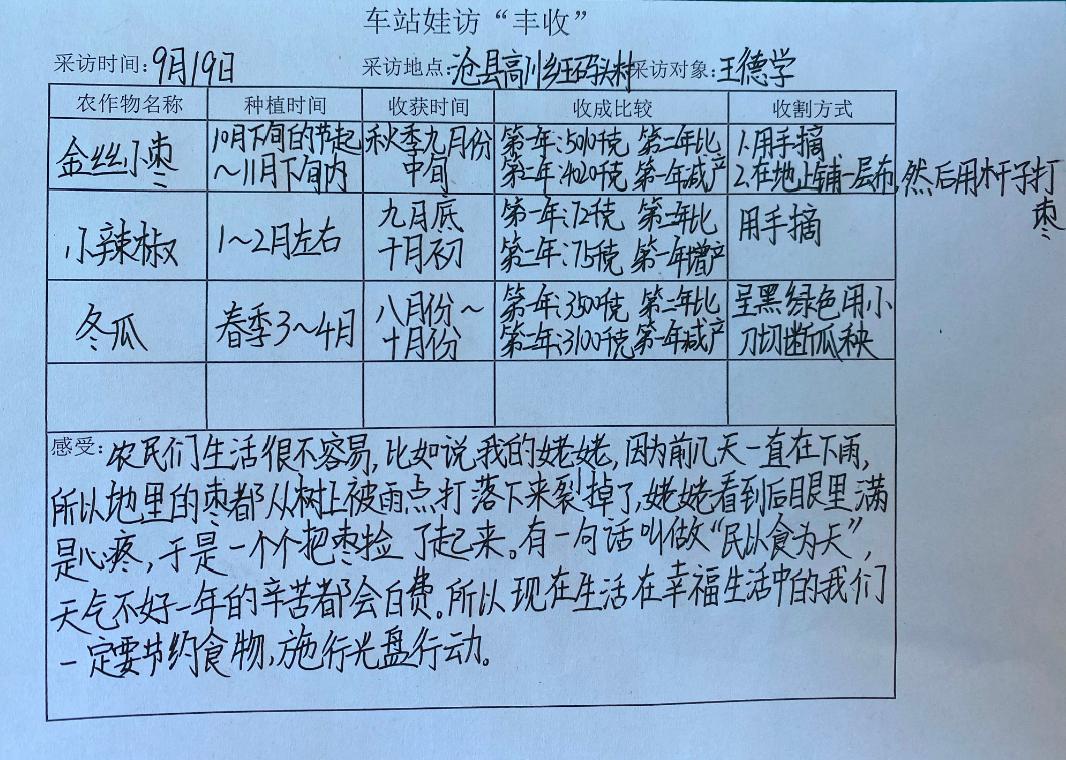 车站娃访“丰收”
采访时间:9月19日 采访地点:沧县高川乡王码头村 采访对象:王德学
农作物名称 种植时间 收获时间 收成比较 收割方式
金丝小枣
10月下旬的节起
～11月下旬内
秋季九月份
中旬
第一年:5010千克 第二年比
第二年:4020千克 第一年减产
1.用手摘
2.在地上铺一层布,然后用杆子打
枣
小辣椒
1～2月左右
九月底
十月初
第一年:72千克 第二年比
第二年:75千克 第一年增产
用手摘
冬瓜
春季3～4月
八月份～
十月份
第一年:3500千克 第二年比
第二年:3100千克 第一年减产
呈黑绿色用小
刀切断瓜秧
感受:农民们生活很不容易,比如说我的姥姥,因为前几天一直在下雨,
所以地里的枣都从树上被雨点打落下来裂掉了,姥姥看到后眼里满
是心疼,于是一个个把枣捡了起来。有一句话叫做“民以食为天”,
天气不好一年的辛苦都会白费。所以现在生活在幸福生活中的我们
一定要节约食物,施行光盘行动。